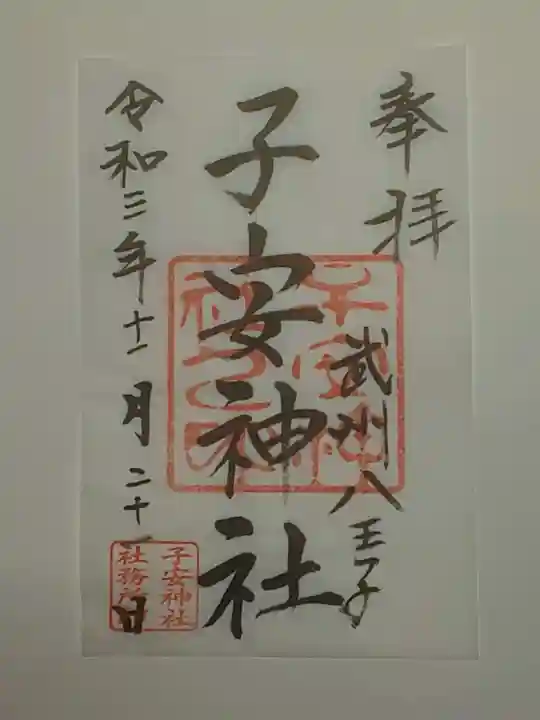 奉拝
武州八王子
子安神社
令和三年十一月二十一日
子安神社
社務所